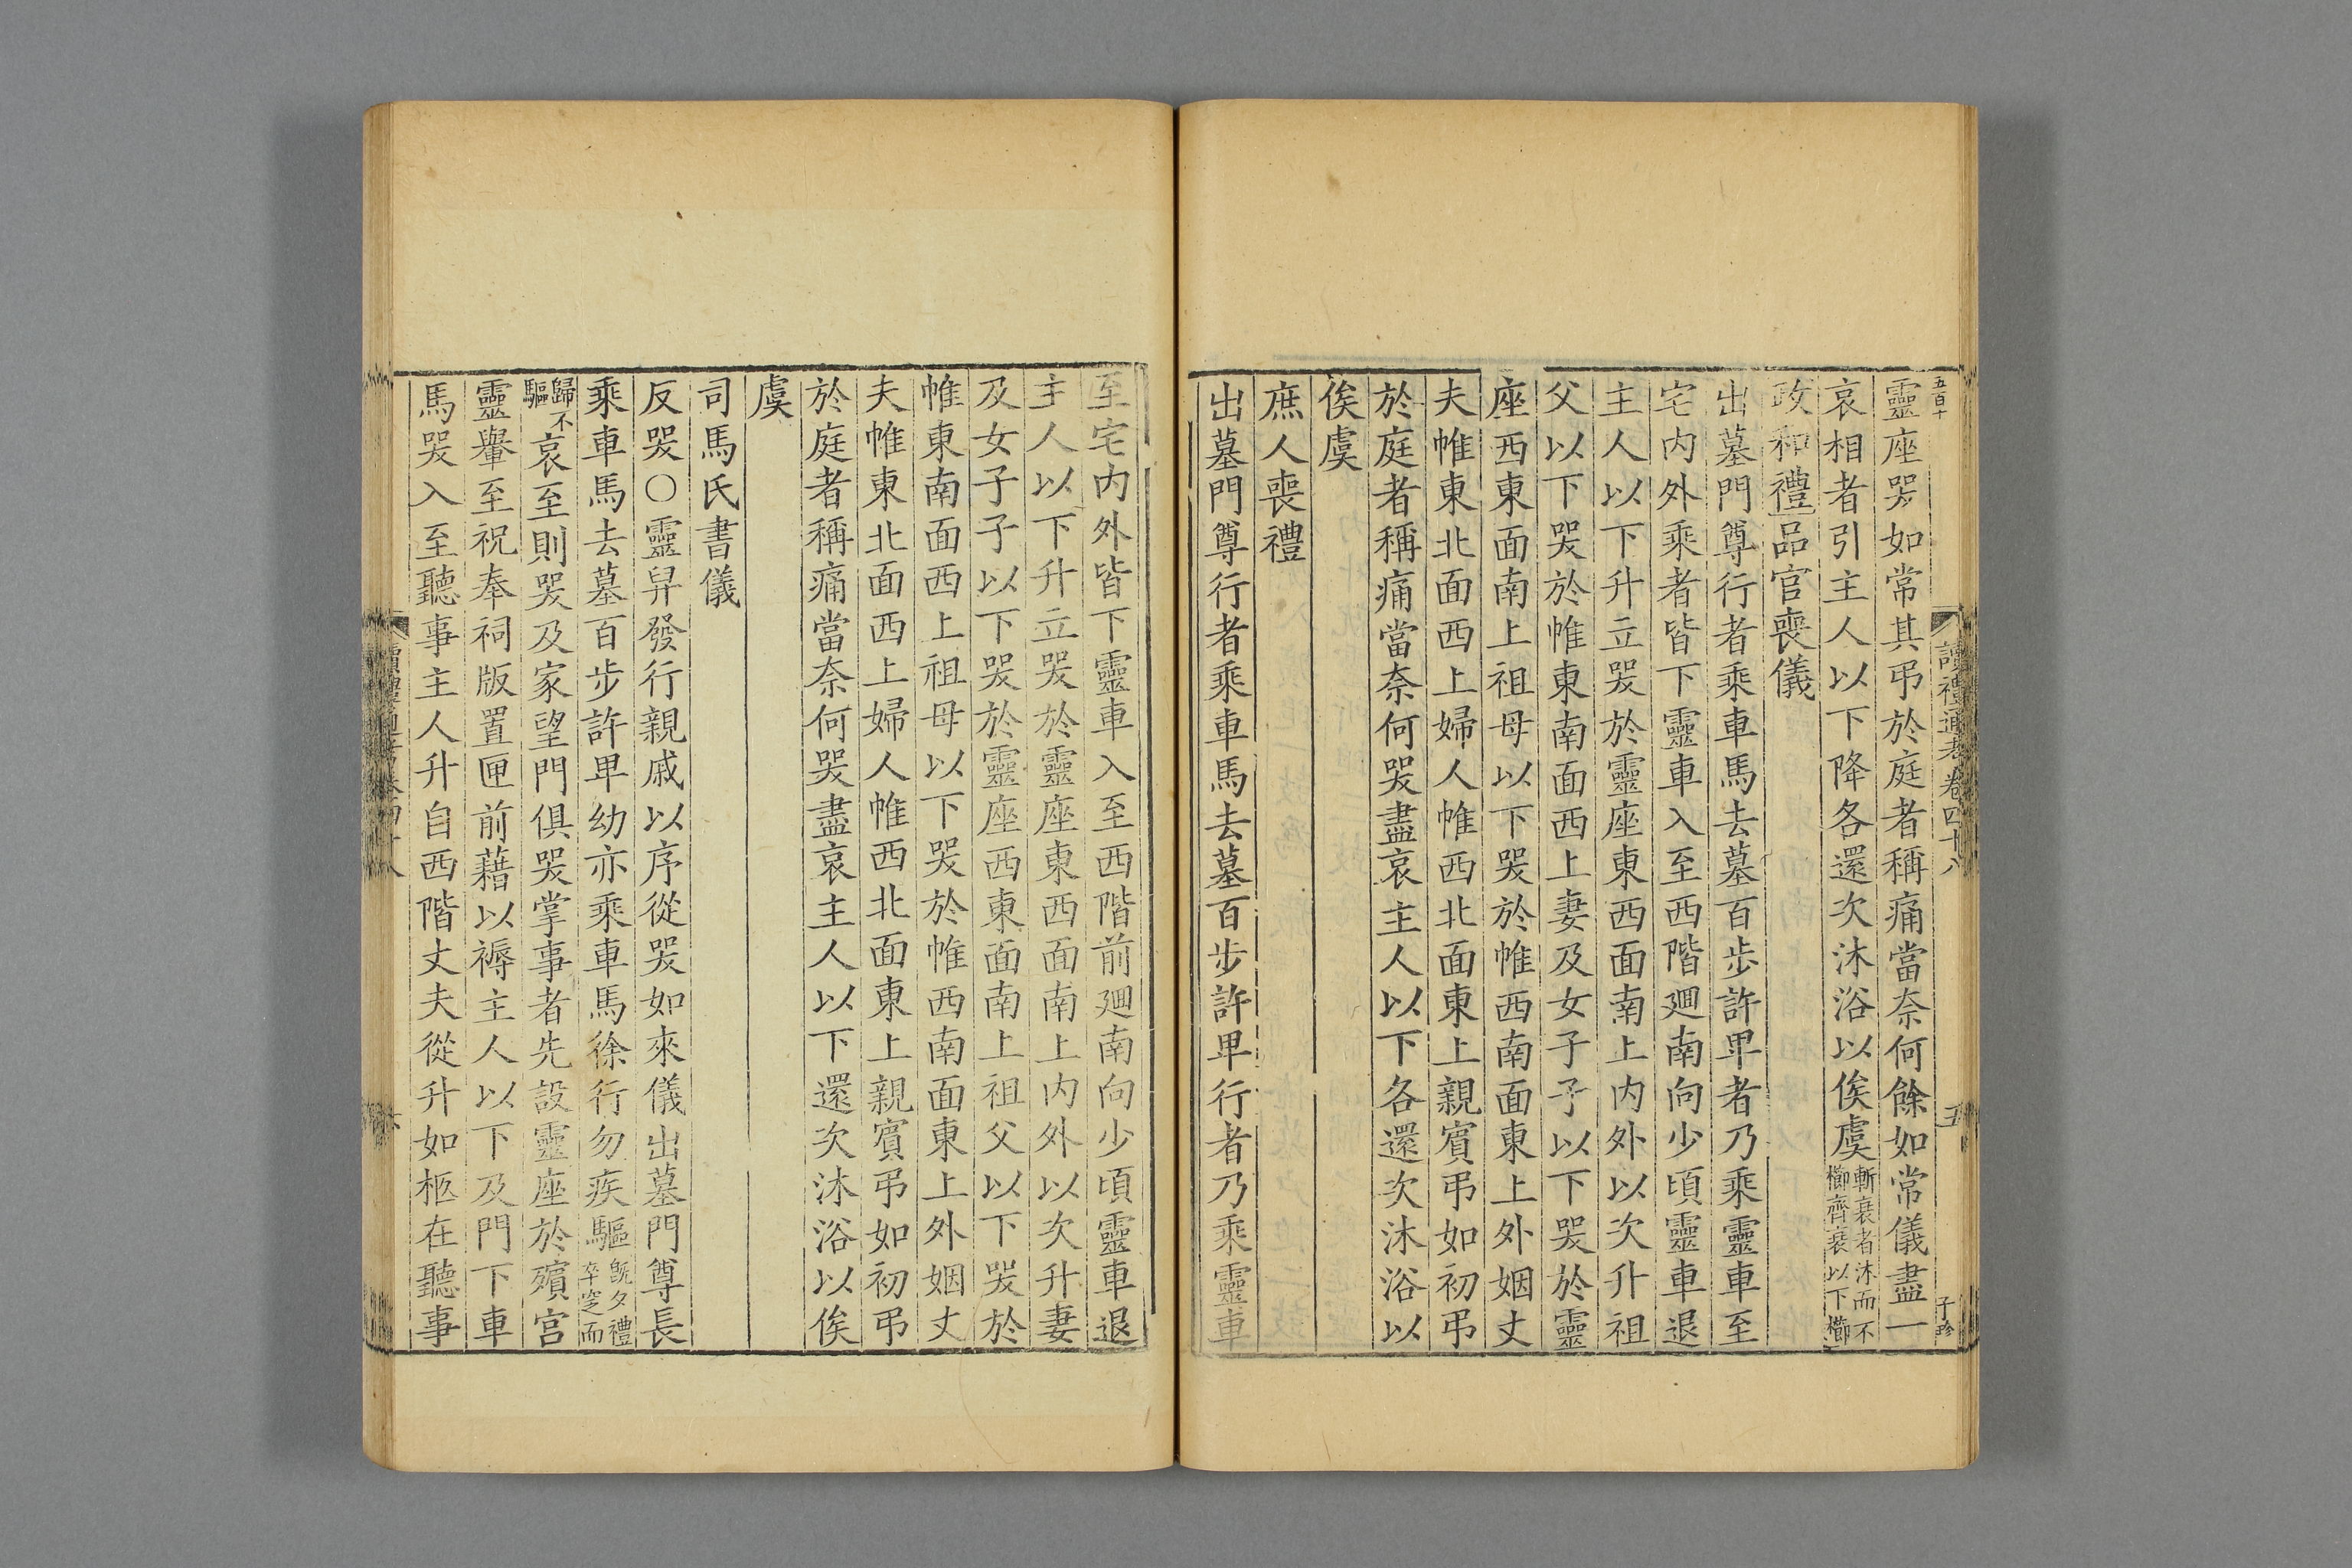 五百十
讀禮通考卷四十八
五
子珍
靈座哭如常其弔於庭者稱痛當奈何餘如常儀盡一
哀相者引主人以下降各還次沐浴以俟虞斬衰者沐而不櫛齊衰以下櫛
政和禮品官喪儀
出墓門尊行者乘車馬去墓百步許卑者乃乘靈車至
宅内外乘者皆下靈車入至西階廻南向少頃靈車退
主人以下升立哭於靈座東西面南上内外以次升祖
父以下哭於帷東南面西上妻及女子子以下哭於靈
座西東面南上祖母以下哭於帷西南面東上外姻丈
夫帷東北面西上婦人帷西北面東上親賓弔如初弔
於庭者稱痛當奈何哭盡哀主人以下各還次沐浴以
俟虞
庶人喪禮
出墓門尊行者乘車馬去墓百步許卑行者乃乘靈車
至宅内外皆下靈車入至西階前廻南向少頃靈車退
主人以下升立哭於靈座東西面南上内外以次升妻
及女子子以下哭於靈座西東面南上祖父以下哭於
帷東南面西上祖母以下哭於帷西南面東上外姻丈
夫帷東北面西上婦人帷西北面東上親賓弔如初弔
於庭者稱痛當奈何哭盡哀主人以下還次沐浴以俟
虞
司馬氏書儀
反哭○靈轝發行親戚以序從哭如來儀出墓門尊長
乘車馬去墓百步許卑幼亦乘車馬徐行勿疾驅旣夕禮卒窆而
歸不驅哀至則哭及家望門俱哭掌事者先設靈座於殯宮
靈轝至祝奉祠版置匣前藉以褥主人以下及門下車
馬哭入至聽事主人升自西階丈夫從升如柩在聽事
讀禮通考卷四十八
六